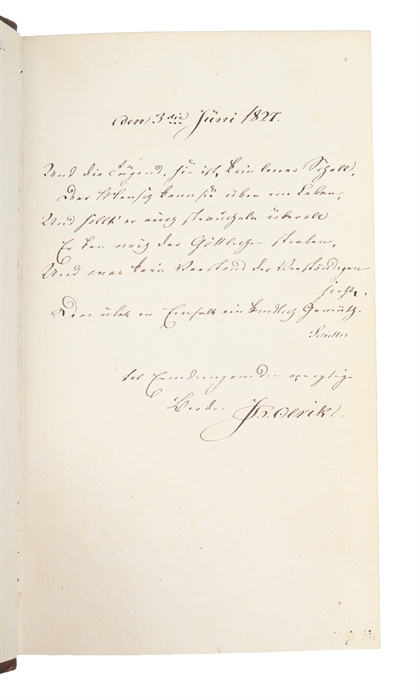 den 3die Jüni 1827.
Und die Tügend, sie ist kein leerer Schall,
Der Mensch kann sie üben im Leben,
Und sollt' er auch straucheln überall
Er kan nach der Göttlichen streben,
Und was kein Verstand der Verständigen
sieht,
Das übet in Einfalt ein kindlich Gemüth.
Schiller
Broder